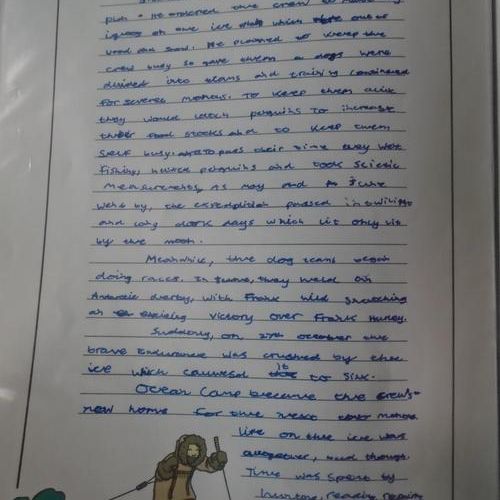 plan. He ordered the crew to
igloos on the ice which out of
wood and snow. He planned to keep the
crew busy so gave them a dogs were
divided into teams and training continued
for several months. To keep them alive
they would catch penguins to increase
their food stocks and to keep them
self busy. to pass their time they went
fishing, hunted penguins and took scietic
measurements. As may and June
went by, the expedition passed in twilight
and long dark days which lit only lit
by the moon.
Meanwhile, the dog teams began
doing races. In June, they held an
Antarctic derby, with Frank Wild snatching
an exciting victory over Frank Hurley.
Suddenly, on 27th october the
brave Endurance was crushed by the
ice which caused it to sink.
Ocean Camp became the crews
new home for the next months.
Life on the ice was
altogether, tough.
Time was spent by
hunting, reading